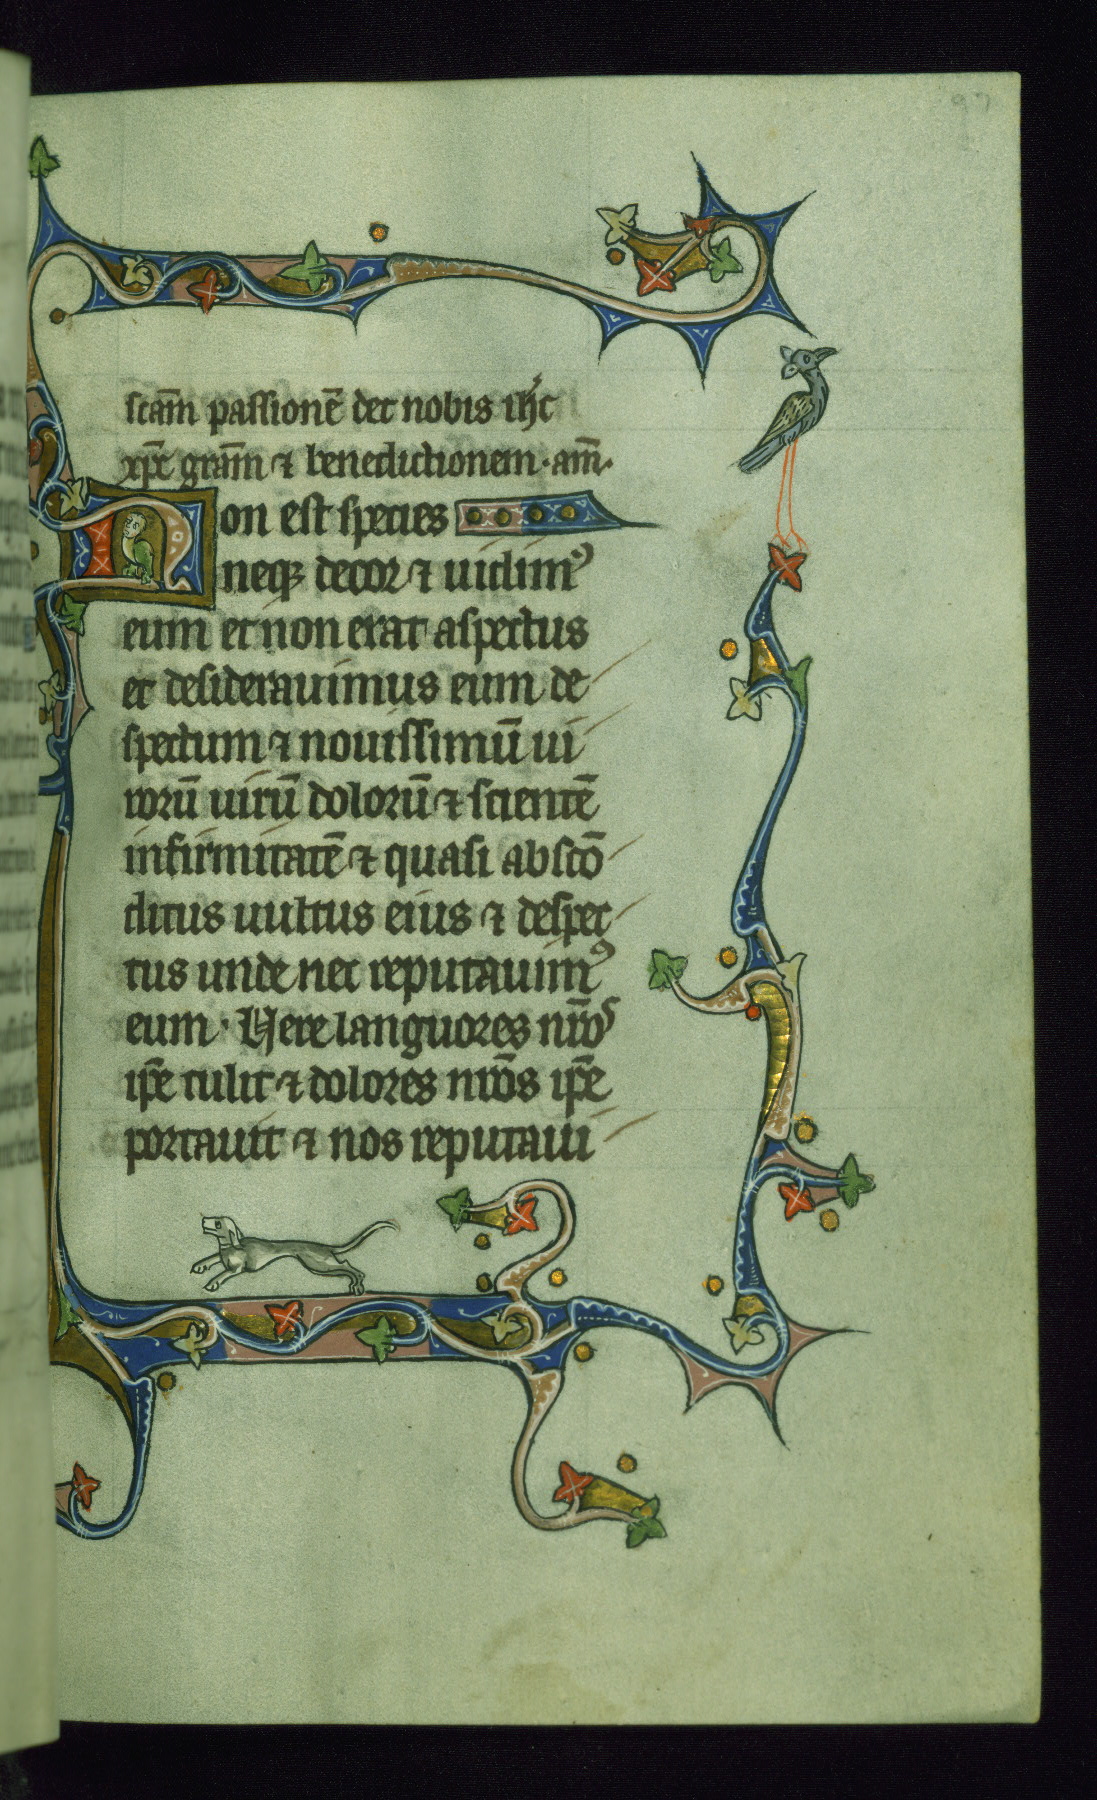 97
scam̄ passionē det nobis ih́c
xp̄c gram̄ ⁊ benedictionem · am̄.
Non est species
neqꝫ decor ⁊ uidimꝰ
eum et non erat aspectus
et desiderauimus eum de
spectum ⁊ nouissimū ui
rorū uirū dolorū ⁊ scientē
infirmitatē ⁊ quasi abscō
ditus uultus eius ⁊ despec
tus unde nec reputauimꝰ
eum · Uere languores nr̄os
ip̄e tulit ⁊ dolores nr̄os ip̄e
portauit ⁊ nos reputaui